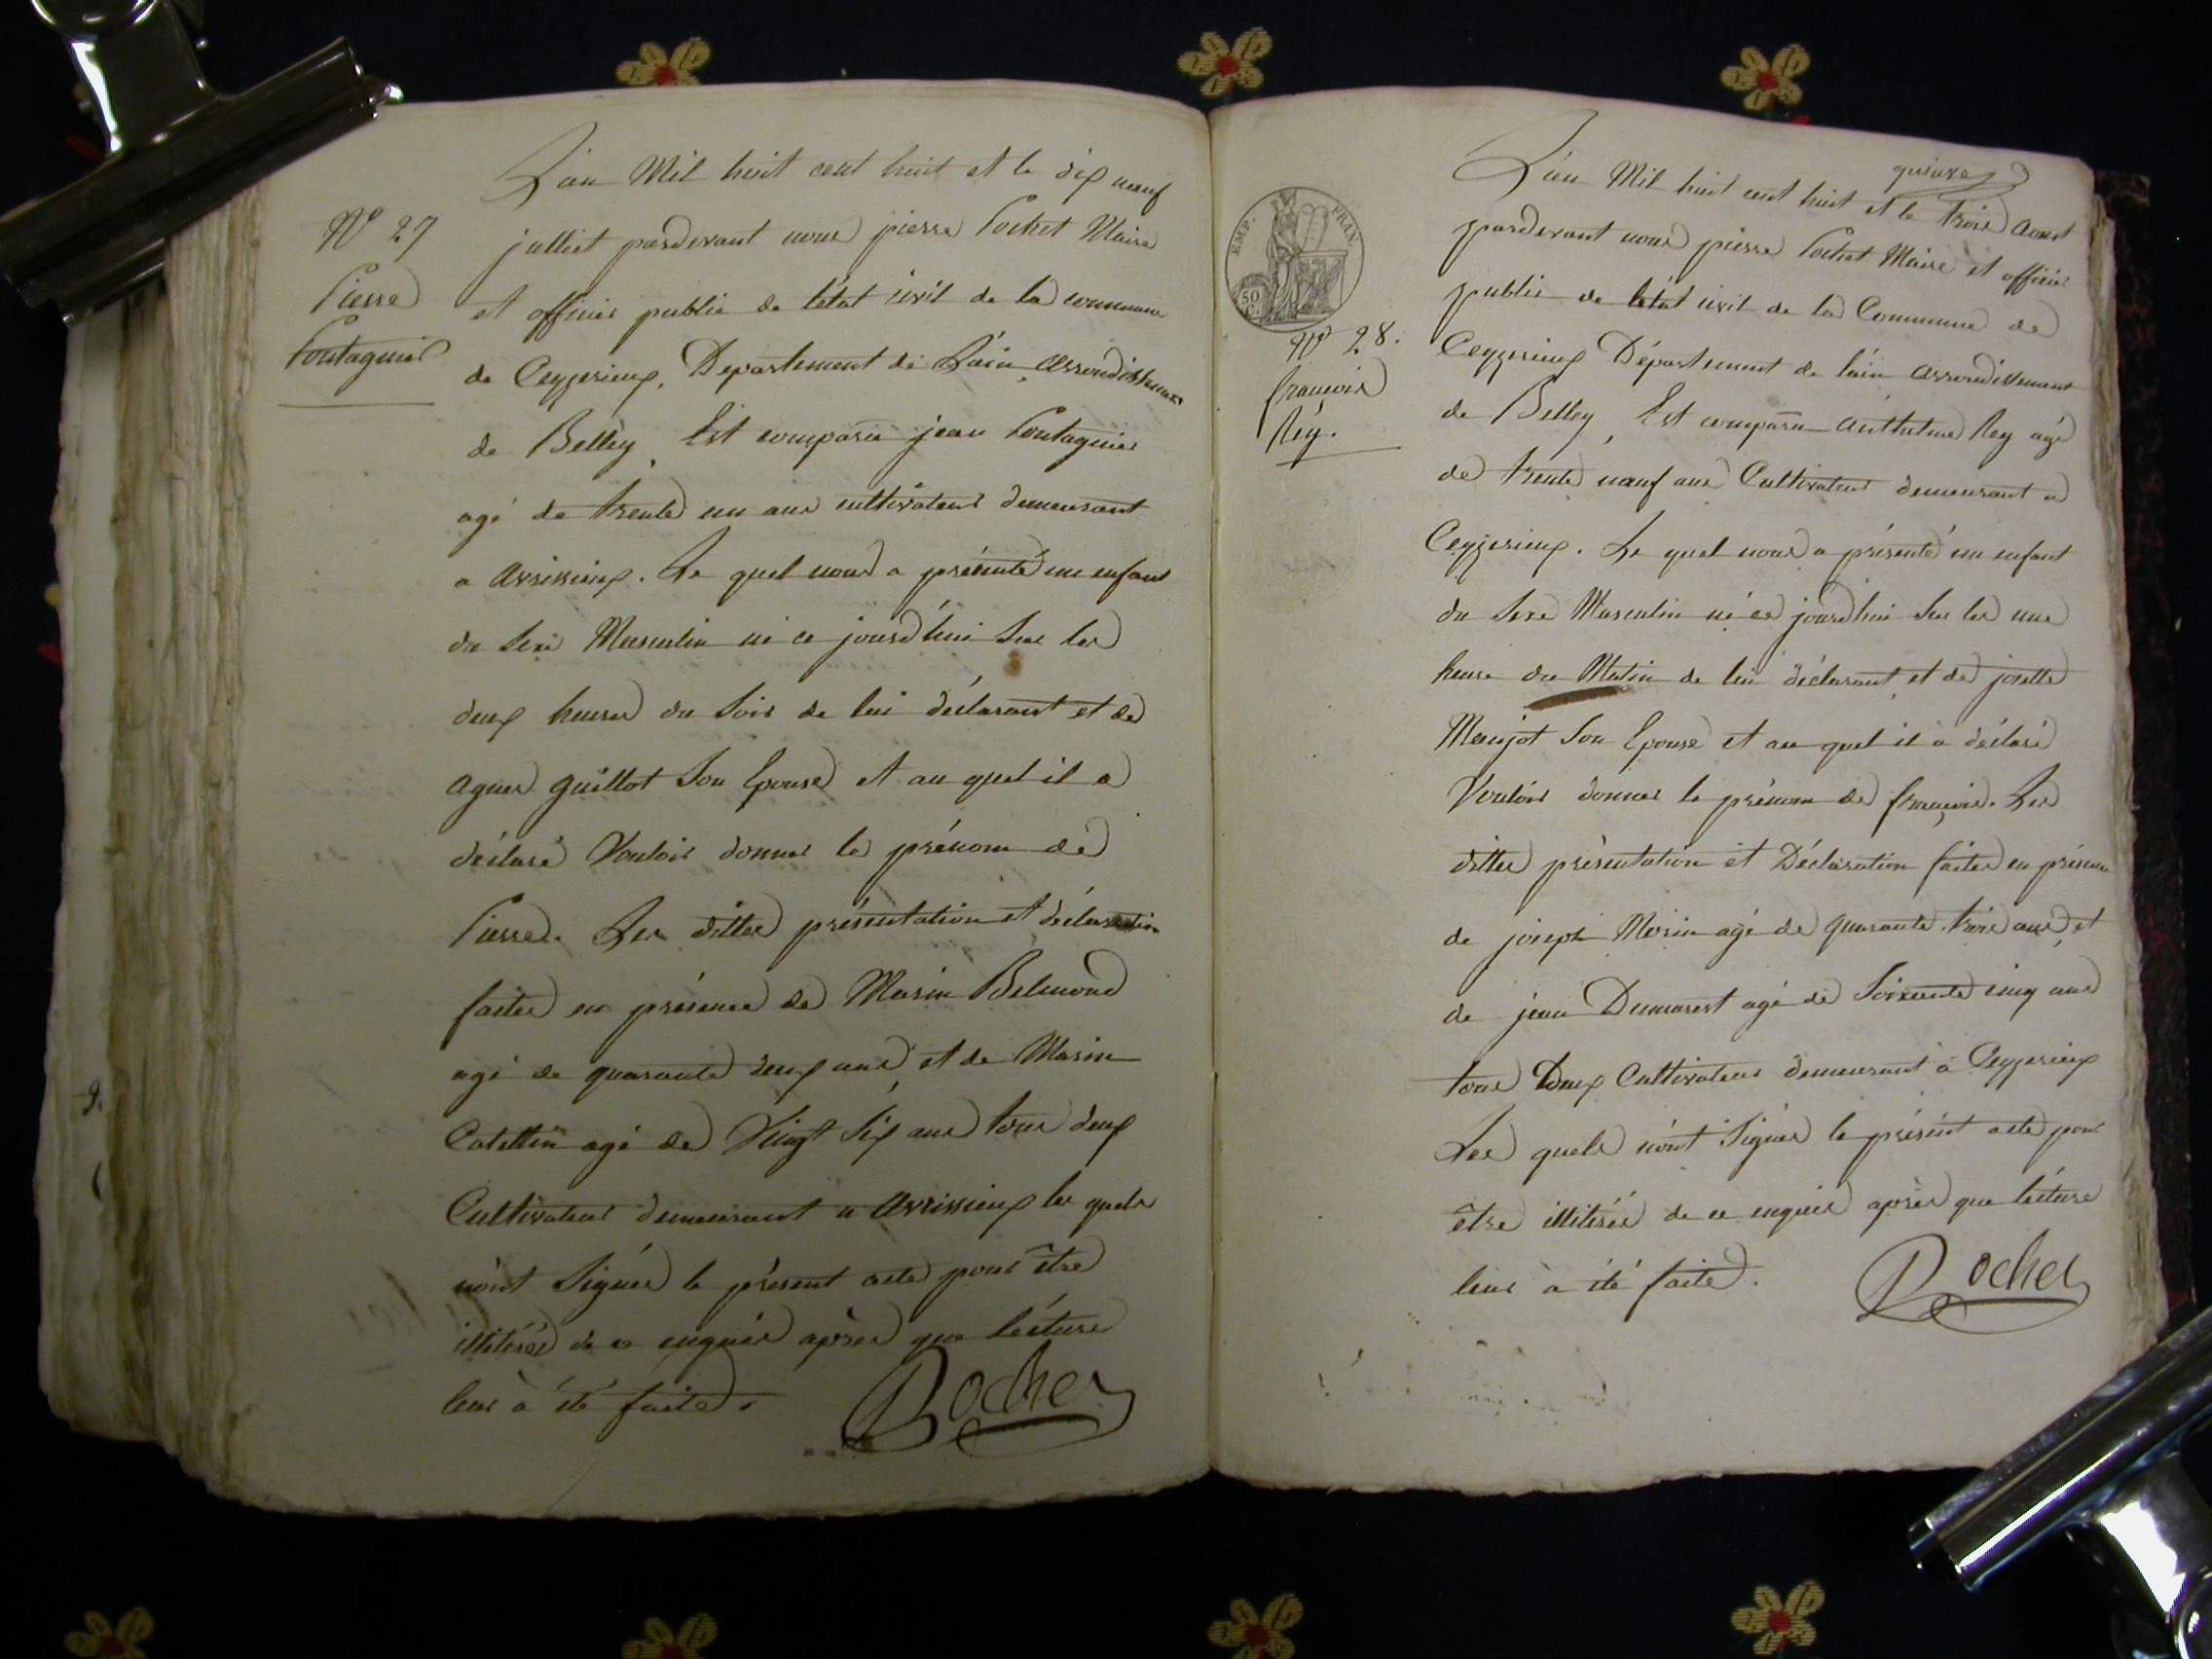 L'an Mil huit cent huit et le dix neuf
N° 27
julliet pardevant nous pierre Pochet Maire
Pierre
et officier public de l'état civil de la commune
Pontagnier
de Ceyzerieux, Departement de L'ain, arrondissement
de Belley, Est comparu jean Pontagnier
agé de trente un ans cultivateur demeurant
a avrissieux. Le quel nous a présenté un enfant
du sexe Masculin né ce jourd'hui sur les
deux heures du soir de lui déclarant et de
agnes guillot son Epouse et au quel il a
déclaré Vouloir donner le prénom de
Pierre. Les dittes présentation et déclaration
faites en présence de Marin Belmond
agé de quarante deux ans, et de Marin
Catettin agé de Vingt six ans tous deux
Cultivateurs demeurant a avrissieux les quels
n'ont signés le présent acte pour être
illitérés de ce enquis après que lécture
leur à été faite.
Pochet
EMP. FRAN.
50
C.
N° 28.
françois
Réy.
quinze
L'an Mil huit cent huit et le trois aoust
pardevant nous pierre Pochet Maire et officier
public de l'état civil de la Commune de
Ceyzerieux Département de l'ain arrondissement
de Belley, Est comparu anthelme Rey agé
de trente neuf ans Cultivateur demeurant a
Ceyzerieux. Le quel nous a présenté un enfant
du sexe Masculin né ce jourd'hui sur les une
heure du Matin de lui déclarant, et de josette
Manjot son Epouse et au quel il a déclaré
Vouloir donner le prénom de françois. Les
dittes présentation et Déclaration faites en présence
de joseph Morin agé de quarante trois ans, et
de jean Dumarest agé de soixante cinq ans
tous Deux Cultivateurs demeurant à Ceyzerieux
Les quels n'ont signés le présent acte pour
être illitérés de ce enquis après que lécture
leur à été faite.
Pochet